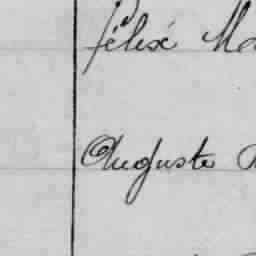 félix Ma
Auguste